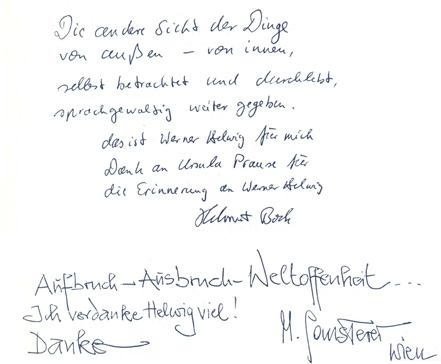 Die andere Sicht der Dinge
von außen – von innen,
selbst betrachtet und durchlebt,
sprachgewaltig weiter gegeben.
das ist Werner Helwig für mich
Dank an Ursula Prause für
die Erinnerung an Werner Helwig
Helmut Bock
Aufbruch – Ausbruch – Weltoffenheit ....
Ich verdanke Helwig viel!
Danke
M. Gomsterer
Wien